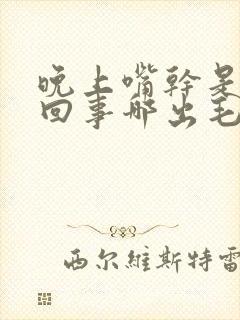 晚上嘴幹是
回事哪出毛
西尔維斯特雷